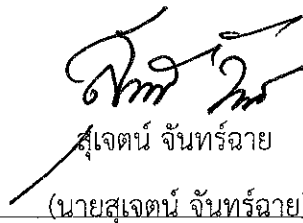 สุเจตน์ จันทร์ฉาย
(นายสุเจตน์ จันทร์ฉาย)